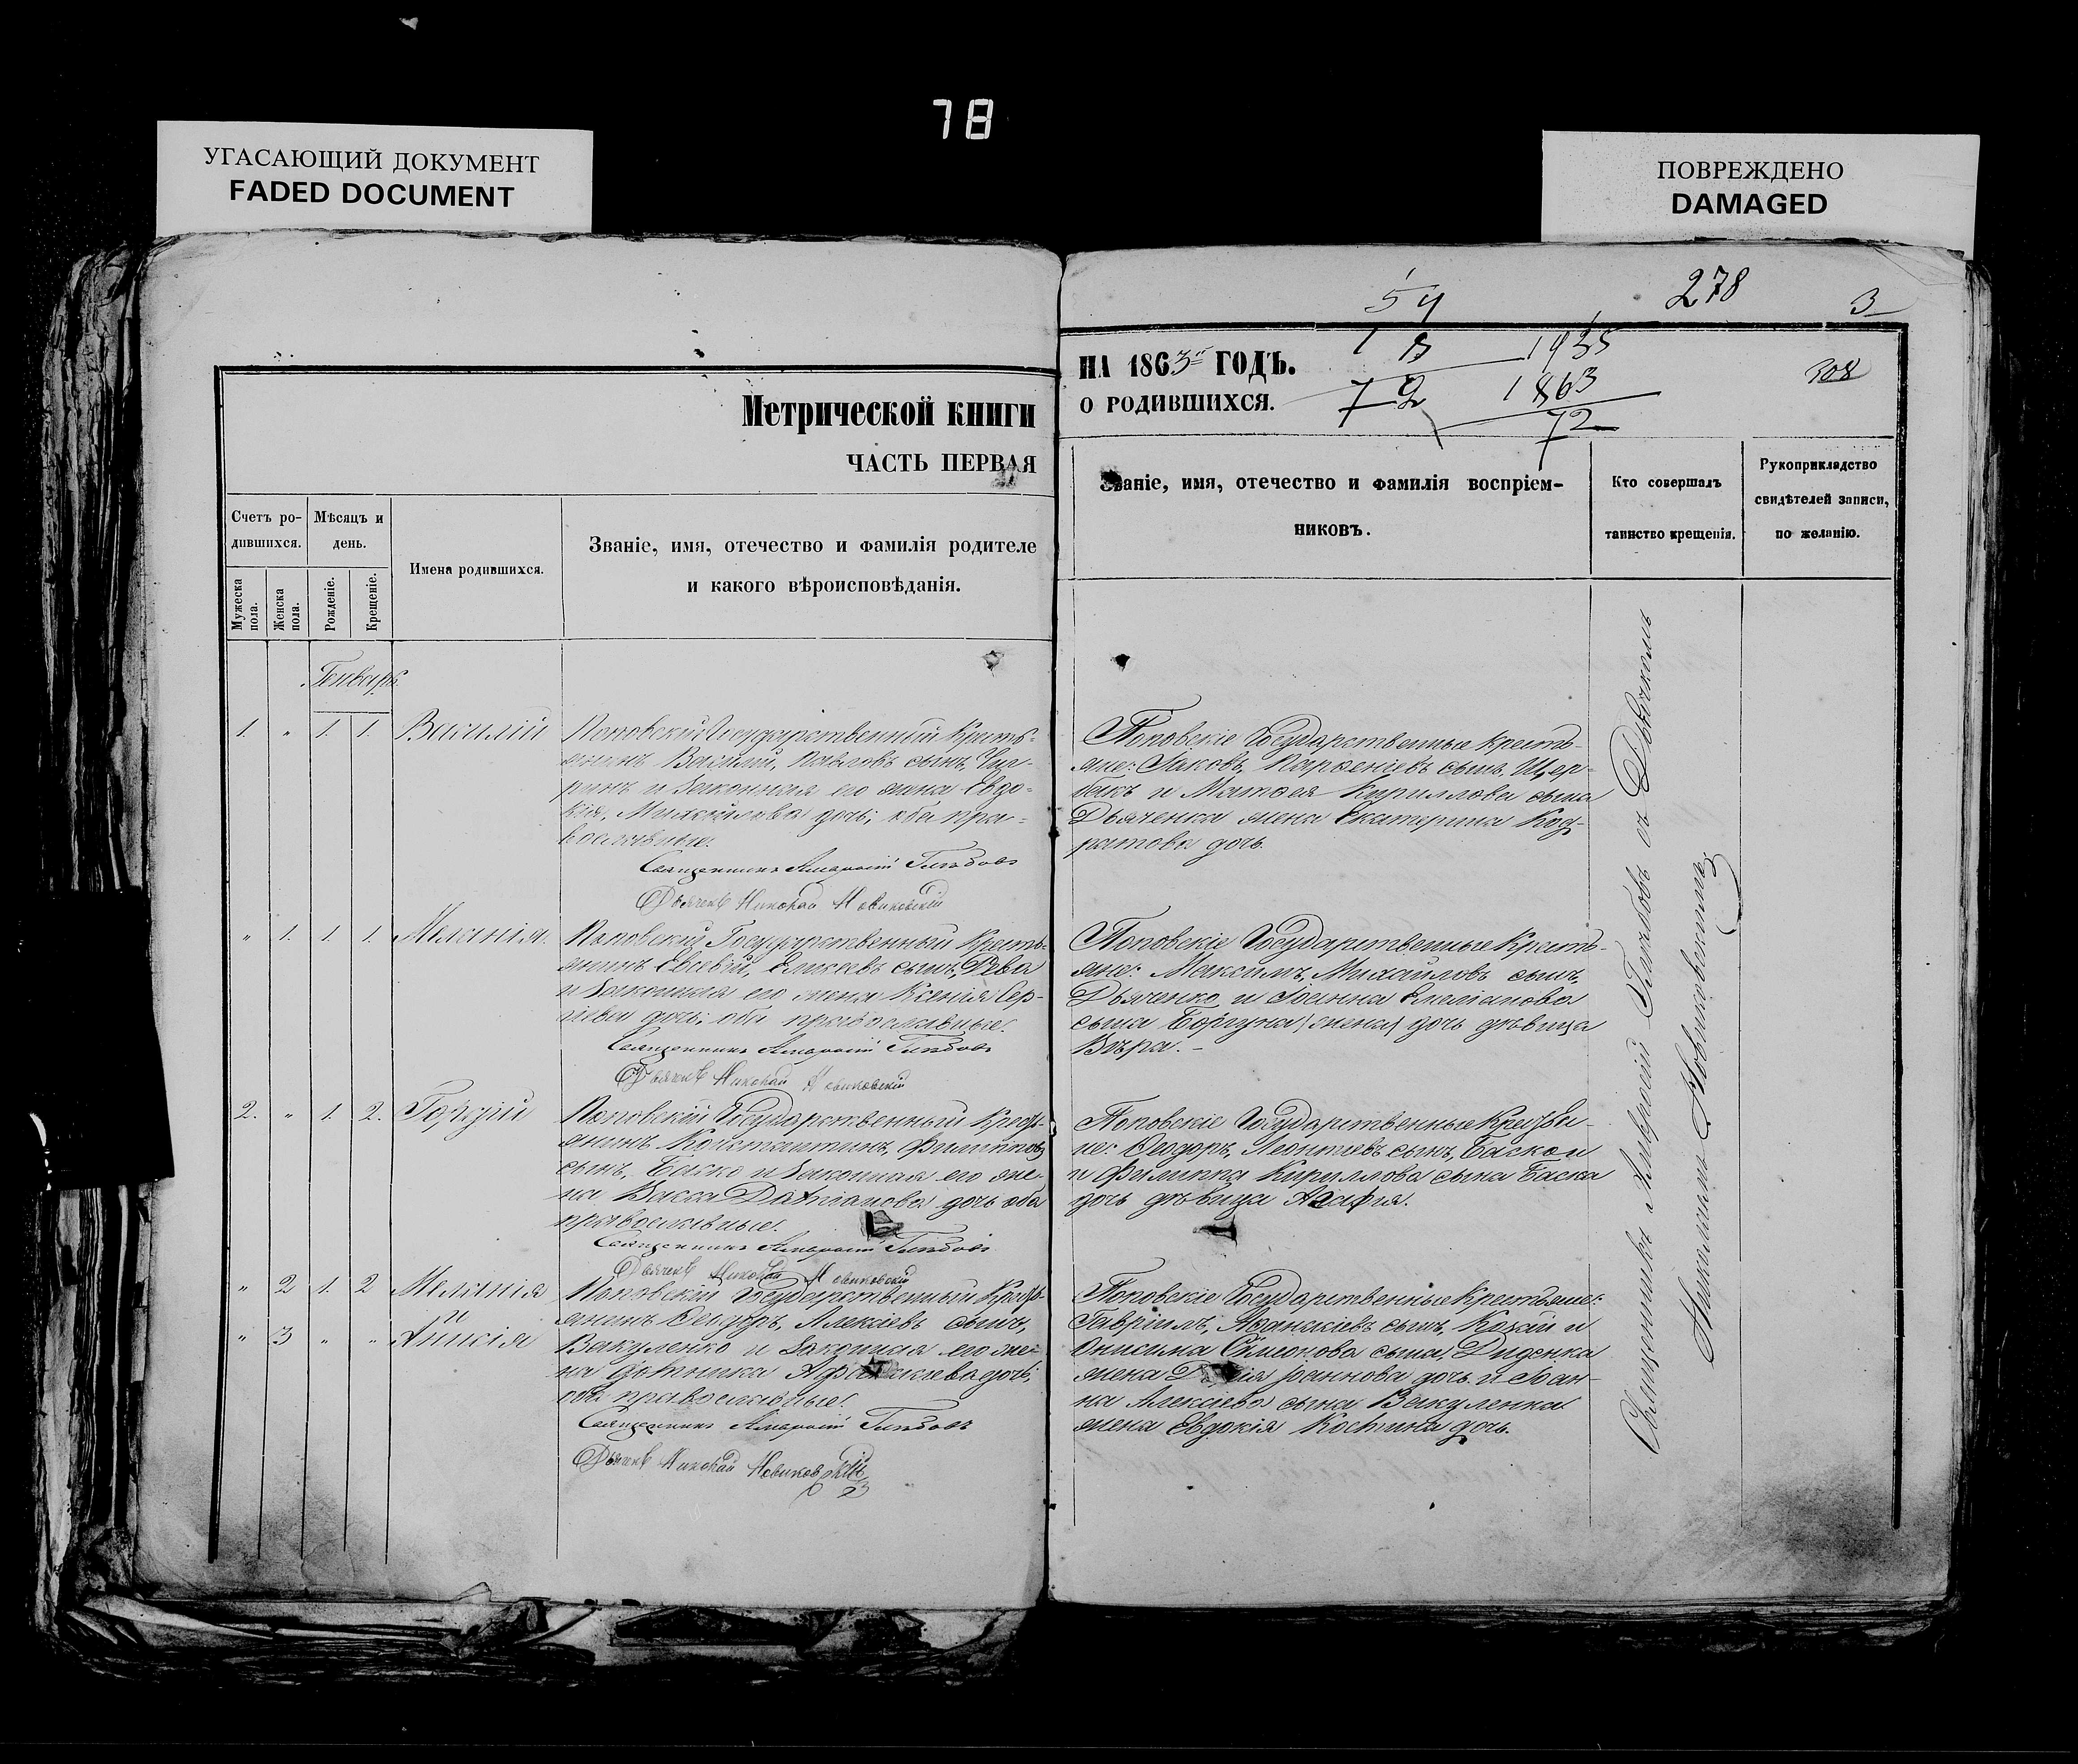 78
УГАСАЮЩИЙ ДОКУМЕНТ
FADED DOCUMENT
ПОВРЕЖДЕНО
DAMAGED
54
278
3
Метрической книги
ЧАСТЬ ПЕРВАЯ
НА 1863 ГОДЪ.
О РОДИВШИХСЯ.
72
1935
1863
72
508
Счетъ ро-
дившихся.
Мужеска пола.
Женска пола.
Мѣсяцъ и
день.
Рожденіе.
Крещеніе.
Имена родившихся.
Званіе, имя, отечество и фамилія родителе
и какого вѣроисповѣданія.
Званіе, имя, отечество и фамилія воспріем-
никовъ.
Кто совершалъ
таинство крещенія.
Рукоприкладство
свидѣтелей записи,
по желанію.
Генварь
1. " 1. 1. Василій
Поповскій Государственный Кресть-
янинъ Василій, Павловъ сынъ,
и законная его жена Евдо-
кія, Михайлова дочь; оба пра-
вославные.
Священникъ Амвросій Глѣбовъ
Дьячекъ Николай Новиковскій
Поповскіе Государственные кресть-
яне: Іаковъ, Парѳеніевъ сынъ, Щер-
бакъ и Матѳея Кириллова сына
Дьяченка жена Екатерина Код-
ратова дочь.
" 1. 1. 1. Меланія.
Поповскій Государственный Кресть-
янинъ Евсевій, Елисеевъ сынъ, Рева
и законная его жена Ксенія Сер-
гіева дочь; оба православные.
Священникъ Амвросій Глѣбовъ
Дьячекъ Николай Новиковскій
Поповскіе Государственные Кресть-
яне: Максимъ, Михайловъ сынъ,
Дьяченко и Іоанна Емеліанова
сына дочь дѣвица
Вѣра. -
2. " 1. 2. Гордій
Поповскій Государственный Кресть-
янинъ Константинъ, Филипповъ
сынъ, Баско и законная его же-
на Васса Даміанова дочь оба
православные.
Священникъ Амвросій Глѣбовъ
Дьячекъ Николай Новиковскій
Поповскіе Государственные Крестья-
не: Ѳеодоръ, Леонтіевъ сынъ, Баско и
и Филиппа Кириллова сына Баска
дочь дѣвица Агафія.
" 2 1. 2 Меланія
и
" 3 " " Анисія
Поповскій Государственный Кресть-
янинъ Ѳеодоръ, Алексіевъ сынъ,
Вакуленко и законная его же-
на Домника дочь;
оба православные.
Священникъ Амвросій Глѣбовъ
Дьячекъ Николай Новиковскій
Поповскіе Государственные Крестьяне:
Гавріилъ, Аѳанасіевъ сынъ, и
Онисима Симеонова сына, Диденка
жена Іоаннова дочь и Іоан-
на Алексіева сына Вакуленка
жена Евдокія Костина дочь.
Священникъ Амвросій Глѣбовъ съ Дьячкомъ
Николаемъ Новиковскимъ.